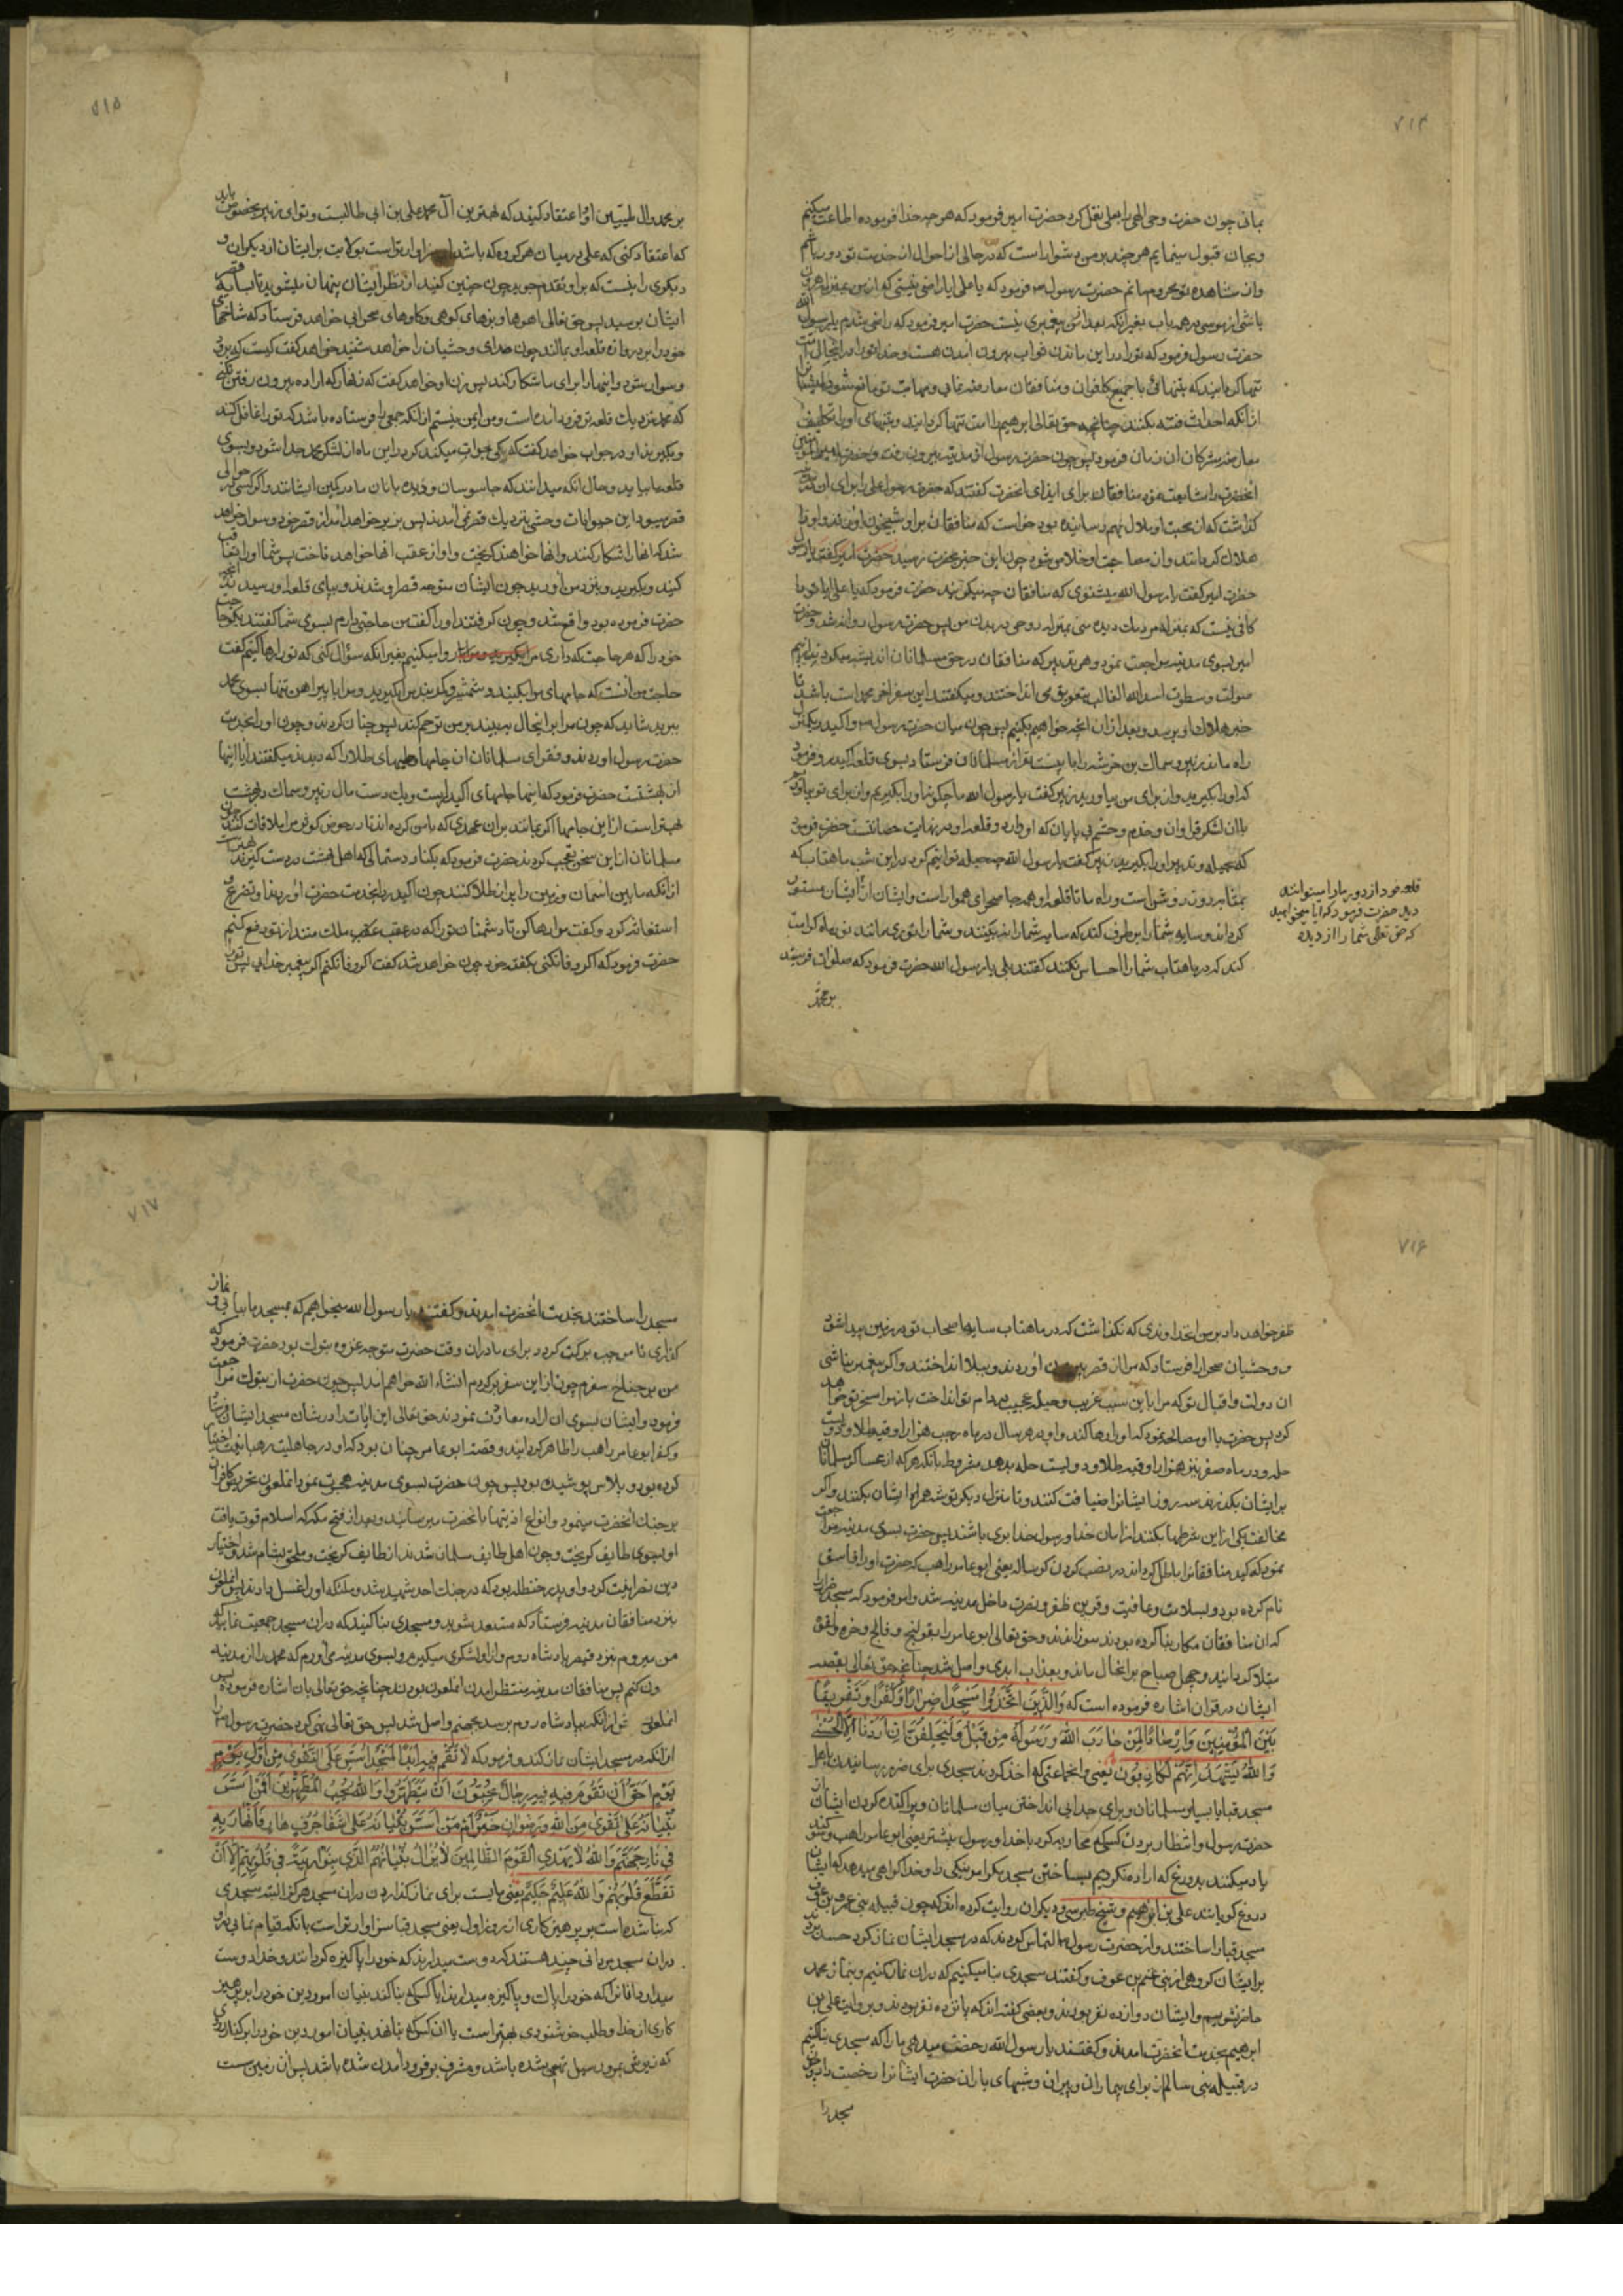 ۷۱۴
بمانی چون حضرت وحی الهی را بعلی نقل کرد حضرت امیر فرمود که هر چه خدا فرموده اطاعت میکنم
و بجان قبول مینمایم هر چند بر من دشوار است که در حالی از احوال از خدمت تو دور باشم
و از مشاهده تو محروم مانم حضرت رسول ص فرمود که یا علی ایا راضی نیستی که از من بمنزله هرون
باشی از موسی در همه باب بغیر انکه بعد از من پیغمبری نیست حضرت امیر فرمود که راضی شدم یا رسول الله
حضرت رسول فرمود که ترا در این ماندن ثواب بیرون امدن هست و خدا ترا در اینحال امت
تنها گردانید که بتنهائی با جمیع کافران و منافقان معارضه نمائی و مهابت تو مانع شود ایشانرا
از انکه احداث فتنه بکنند چنانچه حق تعالی ابرهیم را امت تنها گردانید و بتنهای او را تکلیف
معارضه مشرکان ان زمان فرمود پس چون حضرت رسول از مدینه بیرون رفت و حضرت امیرالمؤمنین
انحضرت را مشایعت نمود منافقان برای ایذای انحضرت گفتند که حضرت رسول علی را برای ان در مدینه
گذاشت که از صحبت او ملال بهم رسانیده بود خواست که منافقان بر او شبیخون اورند و او را
هلاک گردانند و از مصاحبت او خلاص شود چون این خبر بحضرت رسید
حضرت امیر گفت یا رسول الله میشنوی که منافقان چه میگویند حضرت فرمود که یا علی ایا تو را
کافی نیست که بمنزله مردمک دیده منی بمنزله روحی در بدن من پس حضرت رسول روانه شد و حضرت
امیر بسوی مدینه مراجعت نمود و هر تدبیر که منافقان در حق مسلمانان اندیشه میکردند از بیم
صولت و سطوت اسد الله الغالب بتعویق می انداختند و میگفتند این سفر اخر محمد است باشد تا
خبر هلاک او برسد و بعد از ان انچه خواهیم بکنیم پس چون میان حضرت رسول ص و اکیدر یکمنزل
راه ماند زبیر و سماک بن خرشه را با بیست نفر از مسلمانان فرستاد بسوی قلعه اکیدر و فرمود
که او را بگیرید و از برای من بیاورید زبیر گفت یا رسول الله ما چگونه او را بگیریم و از برای تو بیاوریم
با ان لشکر فراوان و خدم و حشم بی پایان که او دارد و قلعه او در نهایت حصانتست حضرت فرمود
که بحیله و تدبیر او را بگیرید زبیر گفت یا رسول الله چه حیله توانیم کرد در این شب ماهتاب که
بمثابه روز روشن است و راه ما تا قلعه او همه جا صحرای هموار است و ایشان از
حضرت فرمود که ایا میخواهید
که حق تعالی شما را از دیده
گرداند و سایه شما را برطرف کند که سایه شما را نه بینند و شما را نوری مانند نور ماه کرامت
کند که در ماهتاب شما را احساس نکنند گفتند بلی یا رسول الله حضرت فرمود که صلوات فرستید
بر محمد
۷۱۵
بر محمد و ال طیبین او و اعتقاد کنید که بهترین آل محمد علی بن ابی طالبست و تو ای زبیر بخصوص باید
که اعتقاد کنی که علی در میان هر گروه که باشد سزاوارتر است بولایت بر ایشان از دیگران و
دیگری را نیست که بر او تقدم جوید چون چنین کنید از نظر ایشان پنهان میشوید تا بسایه قصر
ایشان برسید پس حق تعالی اهوها و بزهای کوهی و گاوهای صحرایی خواهد فرستاد که شاخها
خود را بر دروازه قلعه او بمالند چون صدای وحشیان را خواهد شنید خواهد گفت کیست که برود
و سوار شود و اینها را برای ما شکار کند پس زن او خواهد گفت که زنهار که اراده بیرون رفتن نکنی
که محمد نزدیک قلعه تو فرود امده است و من ایمن نیستم از انکه جمعی را فرستاده باشد که تو را غافل کنند
و بگیرند او در جواب خواهد گفت که کی جرات میکند که در این ماه از لشکر محمد جدا شود و بسوی
قلعه ما بیاید و حال انکه میدانند که جاسوسان و دیده بانان ما در کمین ایشانند و اگر کسی در حوالی
قصر میبود این حیوانات وحشی نزدیک قصر نمی امدند پس بزیر خواهد امد از قصر خود و سوار خواهد
شد که انها را شکار کنند و انها خواهند گریخت و او از عقب انها خواهد تاخت پس شما او را تعاقب
کنید و بگیرید و بنزد من اورید چون ایشان متوجه قصر او شدند و بپای قلعه او رسیدند انچه
حضرت فرموده بود واقع شد و چون گرفتند او را گفت من حاجتی دارم بسوی شما گفتند بگو حاجت
خود را که هر حاجت که داری روا میکنیم بغیر انکه سؤال کنی که تو را رها کنیم گفت
حاجت من انست که جامهای مرا بکنید و شمشیر و کمربند مرا بگیرید و مرا با پیراهن تنها بسوی محمد
ببرید شاید که چون مرا بر اینحال به بیند بر من ترحم کند پس چنان کردند و چون او را بخدمت
حضرت رسول اوردند و فقرای مسلمانان ان جامها و حلیهای طلا را که دیدند میگفتند ایا اینها
از بهشتست حضرت فرمود که اینها جامهای اکیدر است و یک دستمال زبیر و سماک در بهشت
بهتر است از این جامها اگر بمانند بر ان عهدی که با من کرده اند تا در حوض کوثر مرا ملاقات کنند
مسلمانان از این سخن تعجب کردند حضرت فرمود که یکتار دستمالی که اهل بهشت در دست گیرند بهتر است
از انکه مابین اسمان و زمین را پر از طلا کنند چون اکیدر را بخدمت حضرت اوردند او تضرع و
استغاثه کرد و گفت مرا رها کن تا دشمنان تو را که در عقب ملک منند از تو دفع کنم
حضرت فرمود که اگر وفا نکنی بگفته خود چون خواهد شد گفت اگر وفا نکنم اگر پیغمبر خدایی پس تو را
۷۱۶
ظفر خواهد داد بر من انخداوندی که نگذاشت که در ماهتاب سایه اصحاب تو در زمین پیدا شود
و وحشیان صحرا را فرستاد که مرا از قصر بیرون اوردند و ببلا انداختند و اگر پیغمبر نباشی
ان دولت و اقبال تو که مرا باین سبب غریب و حیله عجیب در دام تو انداخت باز مرا مسخر تو خواهد
کرد پس حضرت با او مصالحه نمود که او را رها کند و او در هر سال در ماه رجب هزار اوقیه طلا و دویست
حله و در ماه صفر نیز هزار اوقیه طلا و دویست حله بدهد مشروط بانکه هر که از عساکر مسلمانان
بر ایشان بگذرند سه روز ایشانرا ضیافت کنند و تا منزل دیگر توشه همراه ایشان بکنند و اگر
مخالفت یکی از این شرطها بکنند از امان خدا و رسول خدا بری باشند پس حضرت بسوی مدینه مراجعت
نمود که کید منافقانرا باطل گرداند در نصب کردن گوساله یعنی ابو عامر راهب که حضرت او را فاسق
نام کرده بود و بسلامت و عافیت و قرین ظفر و نصرت داخل مدینه شد و امر فرمود که مسجد ضرار را
که ان منافقان مکار بنا کرده بودند سوزاندند و حق تعالی ابو عامر را بقولنج و فالج و خوره و لقوه
مبتلا گردانید و چهل صباح بر انحال ماند و بعذاب ابدی واصل شد چنانچه حق تعالی بقصه
ایشان در قران اشاره فرموده است که وَالَّذِينَ اتَّخَذُوا مَسْجِدًا ضِرَارًا وَكُفْرًا وَتَفْرِيقًا
بَيْنَ الْمُؤْمِنِينَ وَإِرْصَادًا لِمَنْ حَارَبَ اللَّهَ وَرَسُولَهُ مِنْ قَبْلُ وَلَيَحْلِفُنَّ إِنْ أَرَدْنَا إِلَّا الْحُسْنَى
وَاللَّهُ يَشْهَدُ إِنَّهُمْ لَكَاذِبُونَ یعنی و انجماعتی که اخذ کردند مسجدی برای ضرر رسانیدن باهل
مسجد قبا یا بسایر مسلمانان و برای جدایی انداختن میان مسلمانان و پراکنده کردن ایشان از
حضرت رسول و انتظار بردن کسیکه محاربه کرد با خدا و رسول پیشتر یعنی ابو عامر راهب و سوگند
یاد میکنند بدروغ که اراده نکردیم بساختن مسجد مگر امر نیکی را و خدا گواهی میدهد که ایشان
دروغ گویانند علی بن ابراهیم و شیخ طبرسی و دیگران روایت کرده اند که چون قبیله بنی عمرو بن عوف
مسجد قبا را ساختند و از حضرت رسول ص التماس کردند که در مسجد ایشان نماز کرد حسد بردند
بر ایشان گروهی از بنی غنم بن عوف و گفتند مسجدی بنا میکنیم که در ان نماز کنیم و بنماز محمد
حاضر نشویم و ایشان دوازده نفر بودند و بعضی گفته اند که پانزده نفر بودند و بروایت علی بن
ابرهیم بخدمت انحضرت امدند و گفتند یا رسول الله رخصت میدهی ما را که مسجدی بنا کنیم
در قبیله بنی سالم از برای بیماران و پیران و شبهای باران حضرت ایشانرا رخصت داد چون
مسجد را
۷۱۷
مسجد را ساختند بخدمت انحضرت امدند و گفتند یا رسول الله میخواهیم که بمسجد ما بیایی و نماز
گذاری تا موجب برکت گردد برای ما در ان وقت حضرت متوجه غزوه تبوک بود حضرت فرمود که
من بر جناح سفرم چون از این سفر برگردم انشاء الله خواهم امد پس چون حضرت از تبوک مراجعت
فرمود و ایشان بسوی ان اراده معاودت نمودند حق تعالی این ایات را در شان مسجد ایشان فرستاد
و کفر ابو عامر راهب را ظاهر گردانید و قصه ابو عامر چنان بود که او در جاهلیت رهبانیت اختیار
کرده بود و پلاس پوشیده بود پس چون حضرت بسوی مدینه هجرت نمود انملعون تحریص کافران
بر جنگ انحضرت مینمود و انواع اذیتها بانحضرت میرسانید و بعد از فتح مکه که اسلام قوت یافت
او بسوی طایف گریخت و چون اهل طایف مسلمان شدند از طایف گریخت و ملحق بشام شد و اختیار
دین نصرانیت کرد و او پدر حنظله بود که در جنگ احد شهید شد و ملئکه او را غسل دادند پس انملعون
بنزد منافقان مدینه فرستاد که مستعد شوید و مسجدی بنا کنید که در ان مسجد جمعیت نمایید که
من میروم بنزد قیصر پادشاه روم و از او لشکری میگیرم و بسوی مدینه می اورم که محمد را از مدینه
بیرون کنم پس منافقان مدینه منتظر امدن انملعون بودند چنانچه حق تعالی بان اشاره فرموده پس
انملعون پیش از انکه بپادشاه روم برسد بجهنم واصل شد پس حق تعالی نهی کرد حضرت رسول ص را
از انکه در مسجد ایشان نماز کند و فرمود که لَا تَقُمْ فِيهِ أَبَدًا لَمَسْجِدٌ أُسِّسَ عَلَى التَّقْوَى مِنْ أَوَّلِ يَوْمٍ
أَحَقُّ أَنْ تَقُومَ فِيهِ فِيهِ رِجَالٌ يُحِبُّونَ أَنْ يَتَطَهَّرُوا وَاللَّهُ يُحِبُّ الْمُطَّهِّرِينَ أَفَمَنْ أَسَّسَ
بُنْيَانَهُ عَلَى تَقْوَى مِنَ اللَّهِ وَرِضْوَانٍ خَيْرٌ أَمْ مَنْ أَسَّسَ بُنْيَانَهُ عَلَى شَفَا جُرُفٍ هَارٍ فَانْهَارَ بِهِ
فِي نَارِ جَهَنَّمَ وَاللَّهُ لَا يَهْدِي الْقَوْمَ الظَّالِمِينَ لَا يَزَالُ بُنْيَانُهُمُ الَّذِي بَنَوْا رِيبَةً فِي قُلُوبِهِمْ إِلَّا أَنْ
تَقَطَّعَ قُلُوبُهُمْ وَاللَّهُ عَلِيمٌ حَكِيمٌ یعنی مایست برای نماز گذاردن در ان مسجد هرگز البته مسجدی
که بنا شده است بر پرهیزکاری از روز اول یعنی مسجد قبا سزاوارتر است بانکه قیام نمایی در او
در ان مسجد مردانی چند هستند که دوست میدارند که خود را پاکیزه گردانند و خدا دوست
میدارد انانرا که خود را پاک و پاکیزه میدارند ایا کسیکه بنا کند بنیان امور دین خود را بر پرهیز
کاری از خدا و طلب خوشنودی بهتر است یا ان کس که بنا نهد بنیان امور دین خود را بر کنار رودی
که زیرش بمرور سیل تهی شده باشد و مشرف بفرود امدن شده باشد پس ان زمین سست